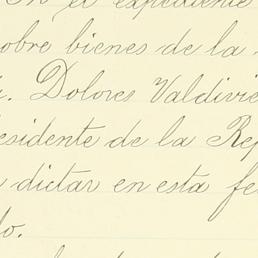 En el expediente
sobre bienes de la
. Dolores Valdivie
esidente de la Rep
dictar en esta fe
do.